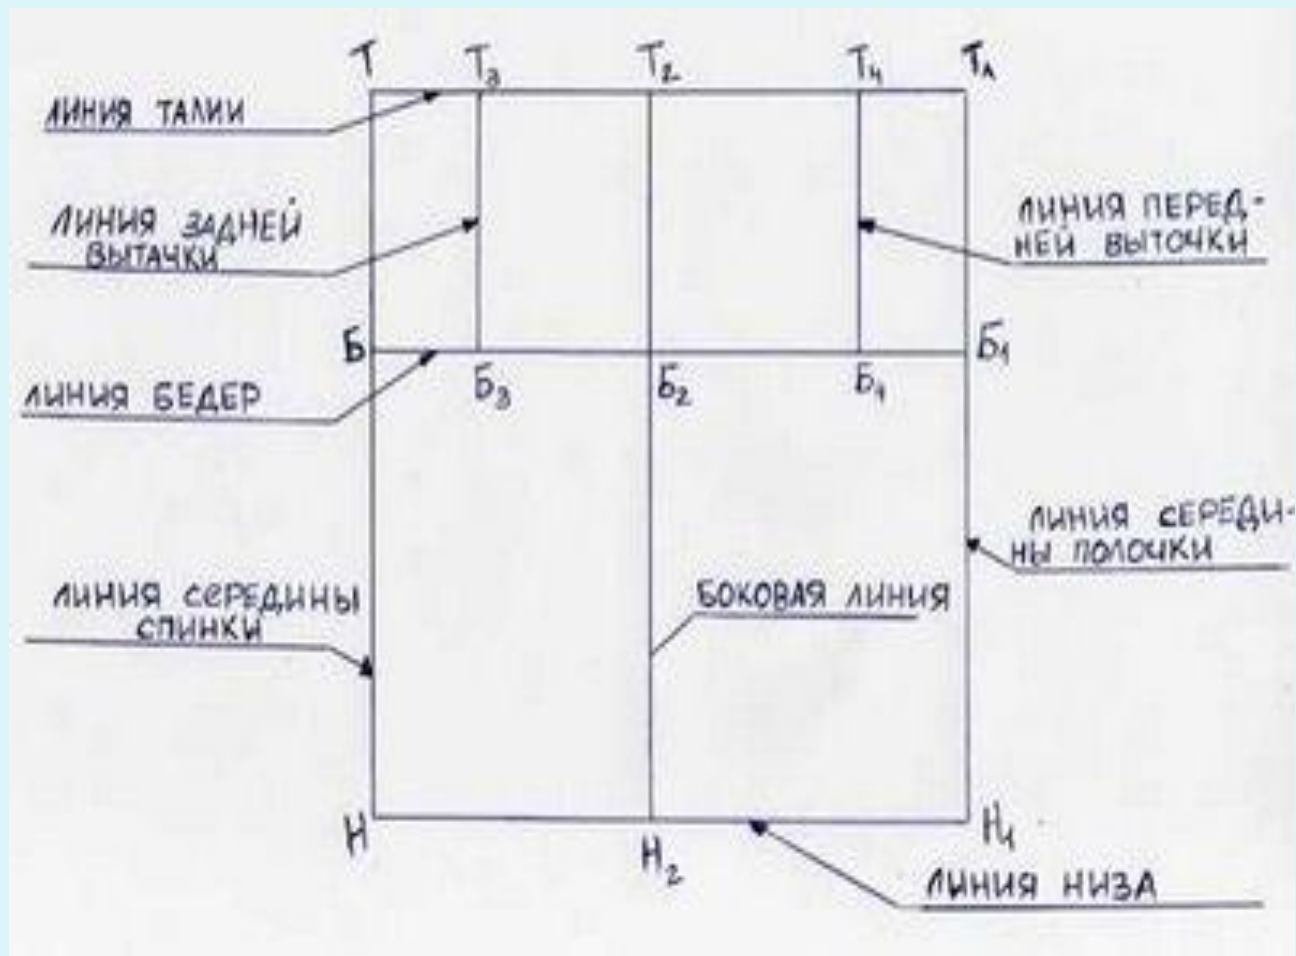 Т Т₃ Т₂ Т₄ Т₁
ЛИНИЯ ТАЛИИ
ЛИНИЯ ЗАДНЕЙ
ВЫТАЧКИ
ЛИНИЯ ПЕРЕД-
НЕЙ ВЫТОЧКИ
Б Б₁
Б₃ Б₂ Б₄
ЛИНИЯ БЕДЕР
ЛИНИЯ СЕРЕДИ-
НЫ ПОЛОЧКИ
ЛИНИЯ СЕРЕДИНЫ
СПИНКИ
БОКОВАЯ ЛИНИЯ
Н Н₂ Н₁
ЛИНИЯ НИЗА